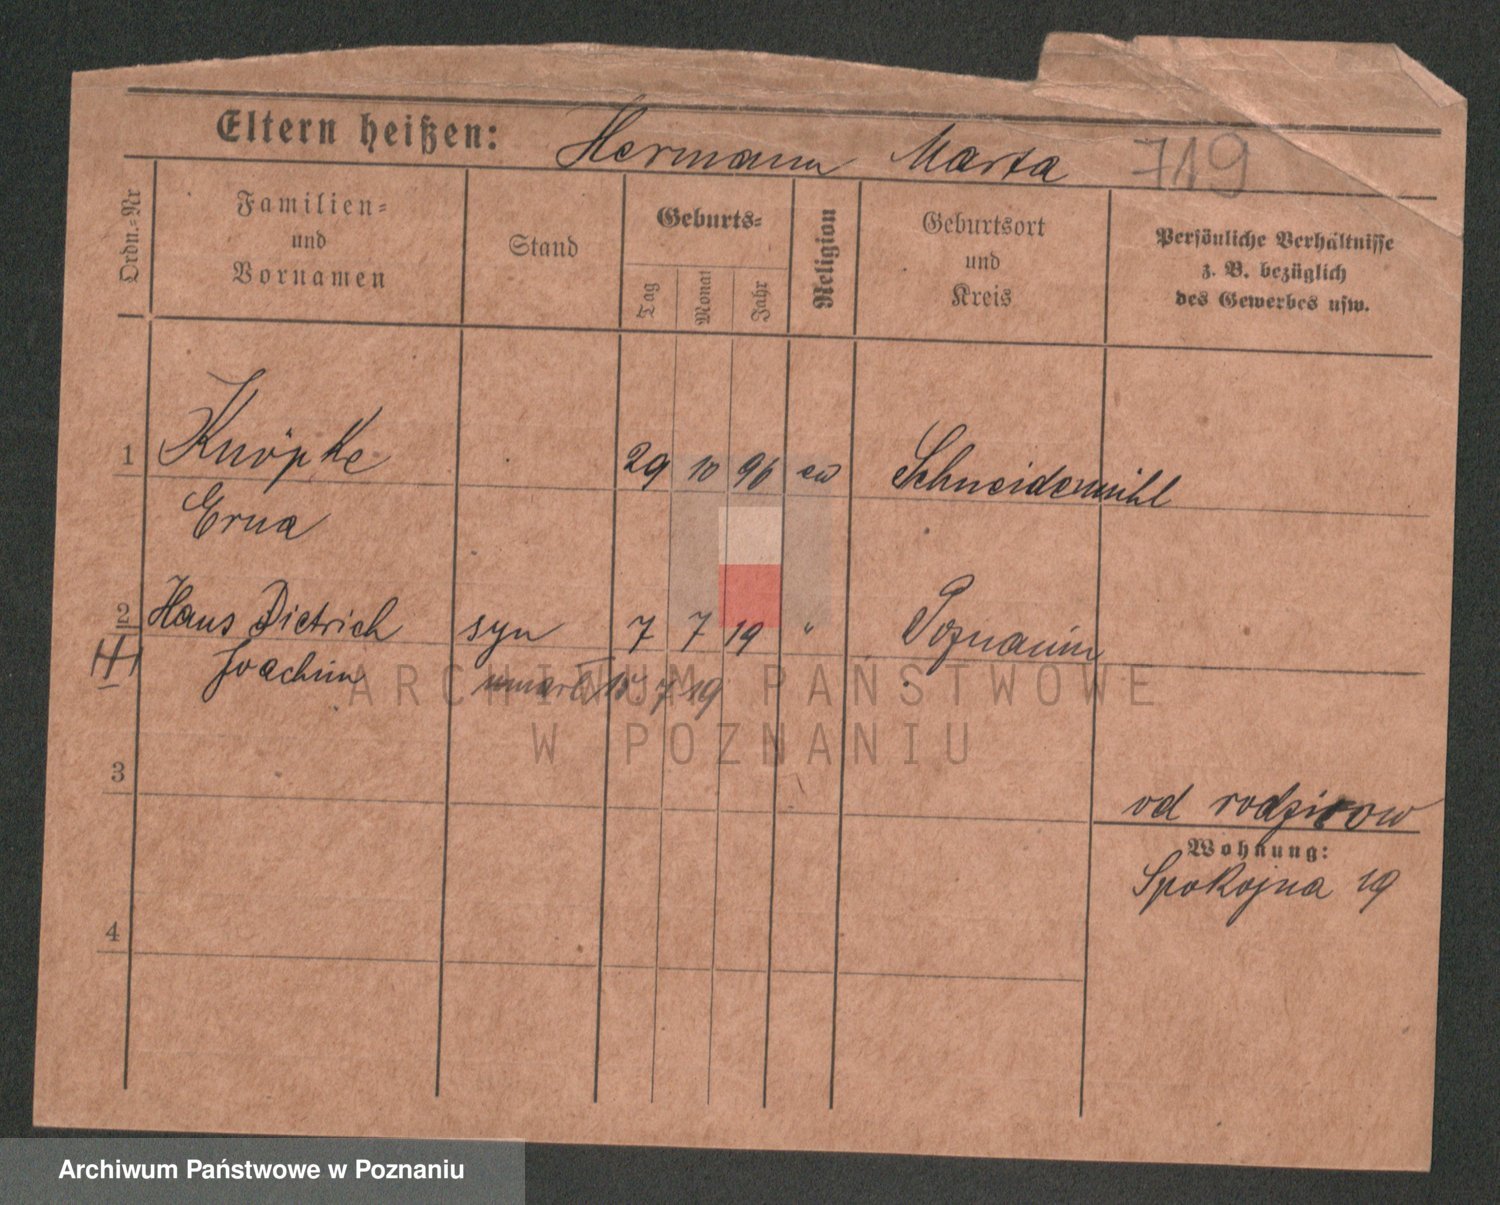 Eltern heißen: Hermann Marta 719
Ordn.=Nr
Familien=
und
Vornamen
Stand
Geburts=
Tag
Monat
Jahr
Religion
Geburtsort
und
Kreis
Persönliche Verhältnisse
z. B. bezüglich
des Gewerbes usw.
1 Knöpke 29 10 96 ew Schneidemühl
Erna
2 Hans Dietrich syn 7 7 19 " Poznaniu
Joachim umarł 15 7 19
ARCHIWUM PAŃSTWOWE
W POZNANIU
3
od rodziców
Wohnung:
Spokojna 19
4
Archiwum Państwowe w Poznaniu